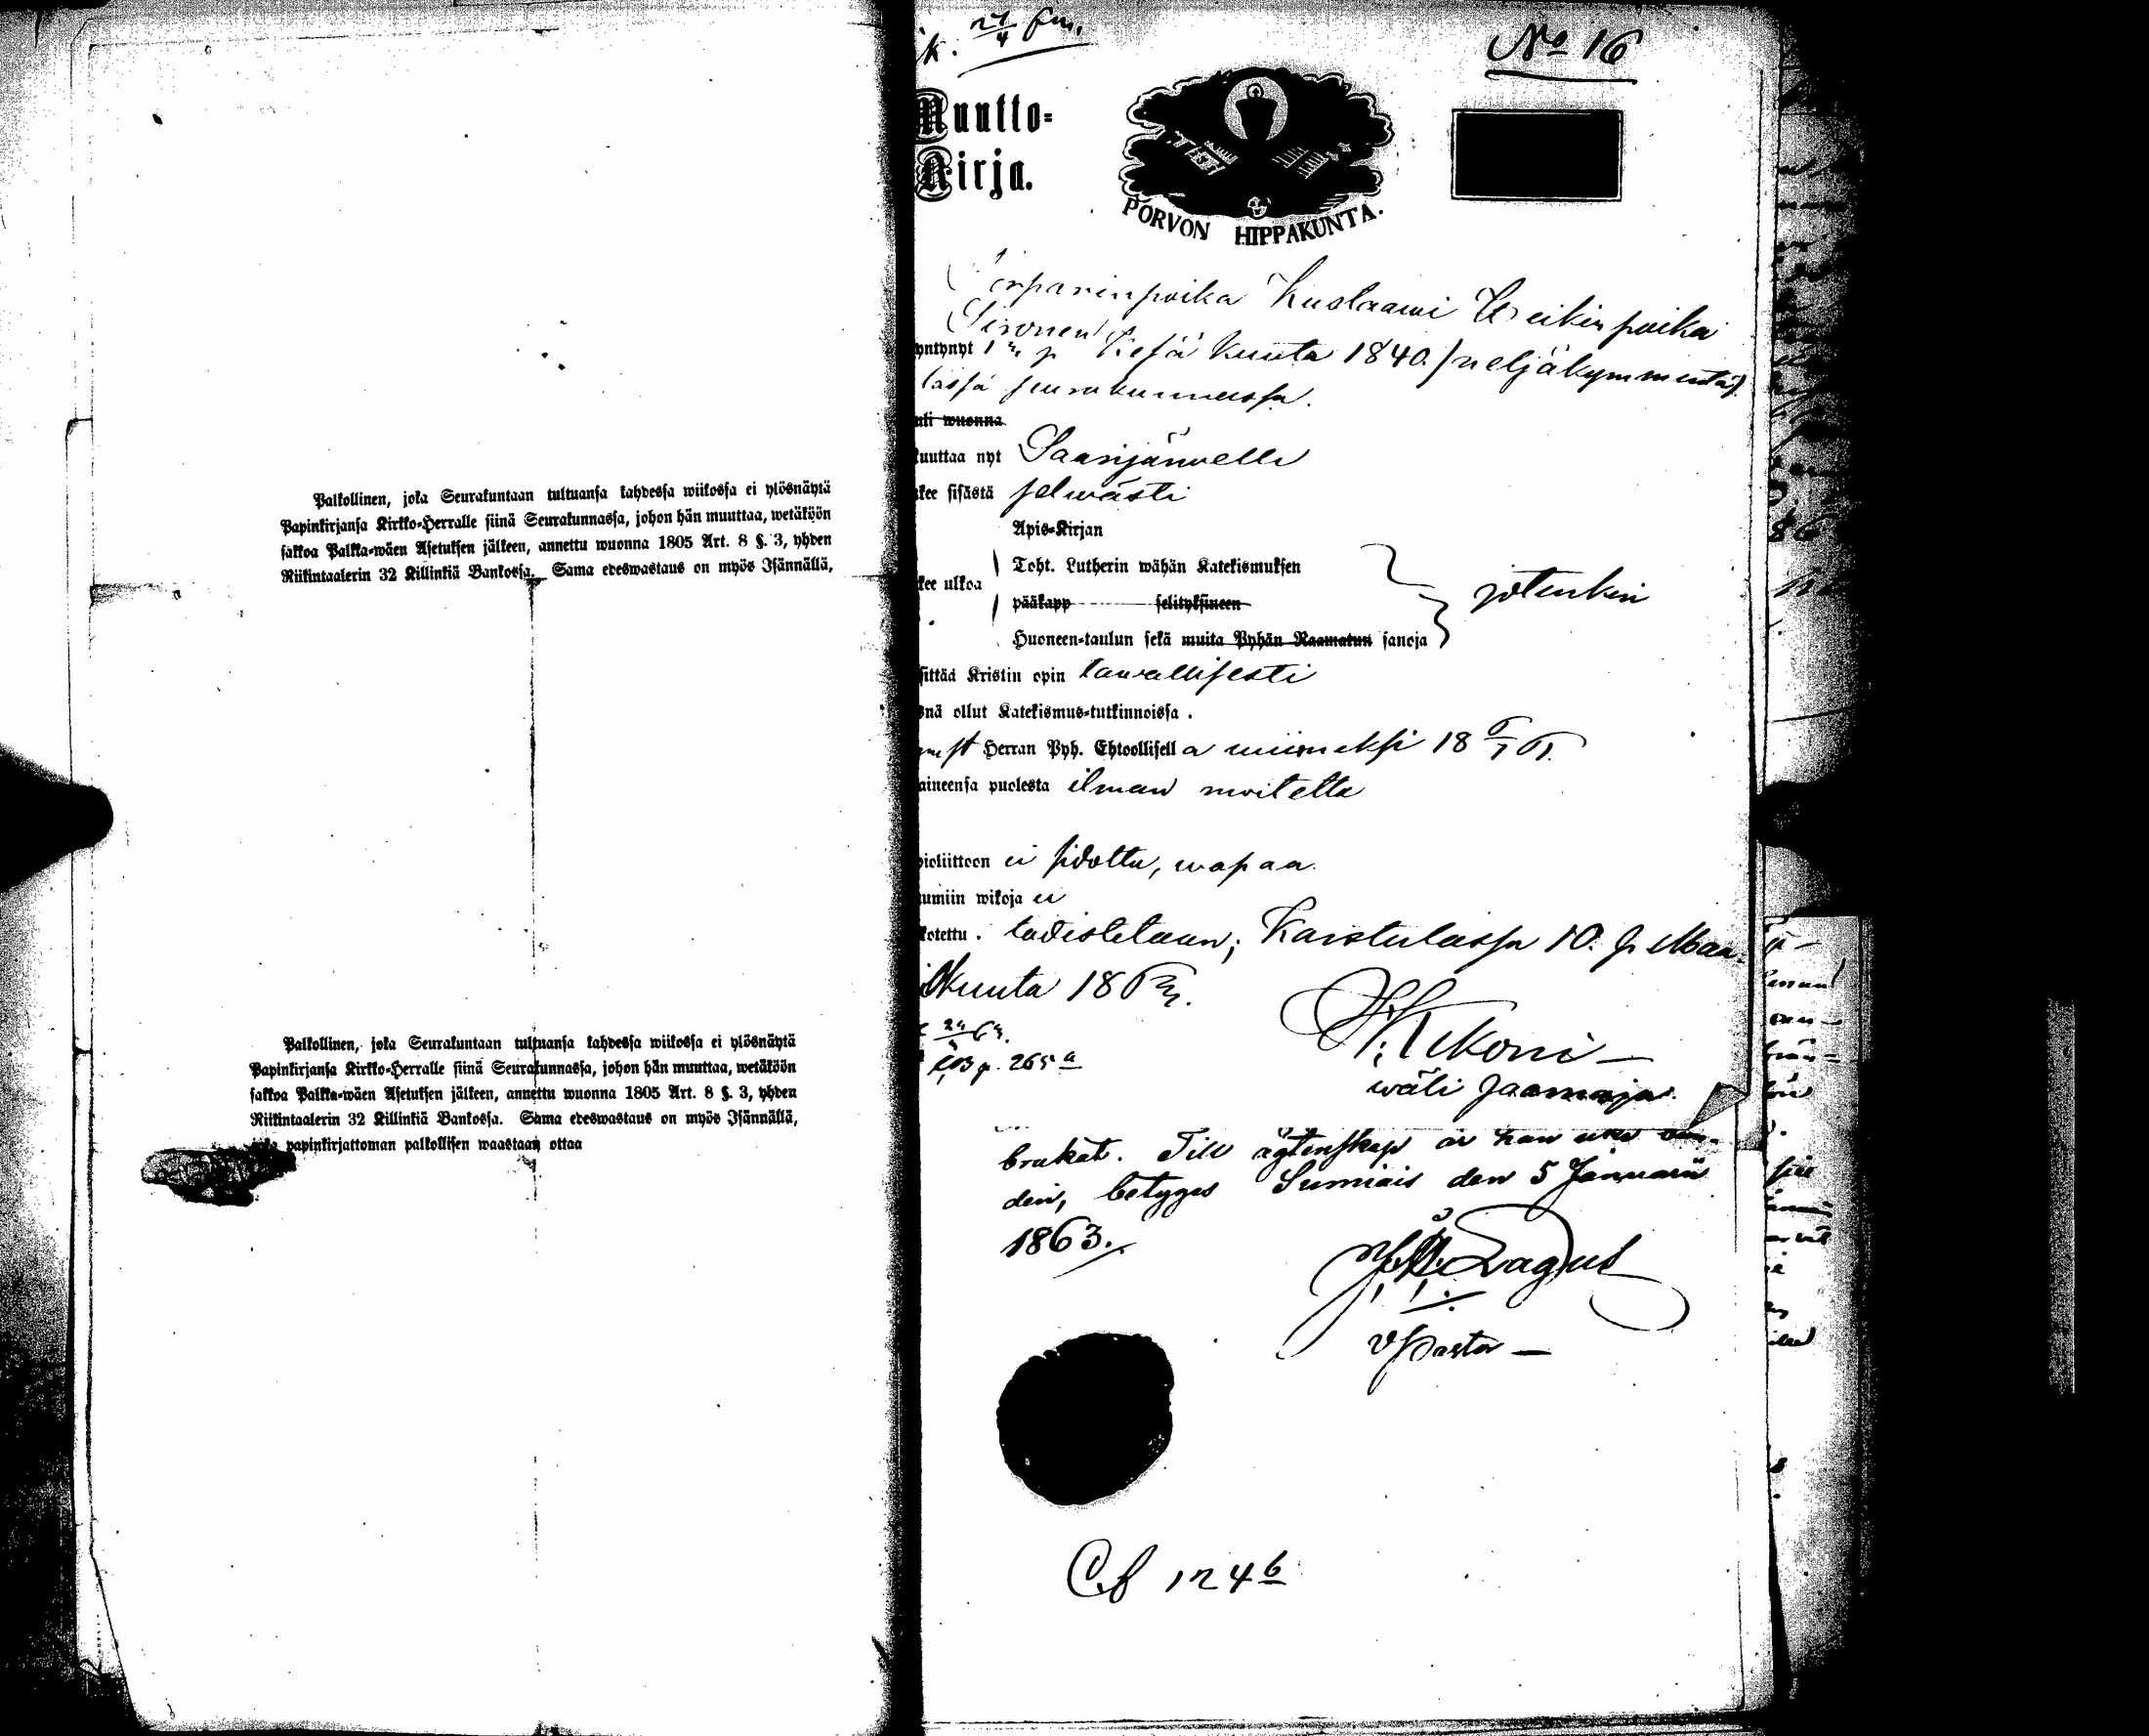 Palkollinen, joka Seurakuntaan tultuansa kahdessa wiikossa ei ylösnäytä
Papinkirjansa Kirkko-Herralle siinä Seurakunnassa, johon hän muuttaa, wetäköön
sakkoa Palkka-wäen Asetuksen jälkeen, annettu wuonna 1805 Art. 8 §. 3, yhden
Riikintaalerin 32 Killinkiä Bankossa. Sama edeswastaus on myös Isännällä,
Palkollinen, joka Seurakuntaan tultuansa kahdessa wiikossa ei ylösnäytä
Papinkirjansa Kirkko-Herralle siinä Seurakunnassa, johon hän muuttaa, wetäköön
sakkoa Palkka-wäen Asetuksen jälkeen, annettu wuonna 1805 Art. 8 §. 3, yhden
Riikintaalerin 32 Killinkiä Bankossa. Sama edeswastaus on myös Isännällä,
joka papinkirjattoman palkollisen waastaan ottaa
No 16
Muutto-
Kirja.
PORVON HIPPAKUNTA.
Torparinpoika Kustaawi Heikinpoika
Sironen
yntynyt 1 p Kesä kuuta 1840 /neljäkymmentä/
lassa seurakunnassa.
uli wuonna
uuttaa nyt Saarijärwelle
kee sisästä selwästi
Apis-Kirjan
Toht. Lutherin wähän Katekismuksen
kee ulkoa
pääkapp selityksineen
jotenkin
Huoneen-taulun sekä muita Pyhän Raamatun sanoja
sittää Kristin opin tawallisesti
snä ollut Katekismus-tutkinnoissa .
Herran Pyh. Ehtoollisella wiimeksi 18
aineensa puolesta ilman moitetta
ioliittoon ei sidottu, wapaa.
umiin wikoja ei
kotettu . todistetaan; Karstulassa 10. p. Maa-
kuuta 186
p. 265 a
wäli Saarnaja.
brukat. Till ägtenskap är han icke bun-
den, betyges Sumiais den 5 Januarii
1863.
Lagus
v Pastor
C.b 124 b